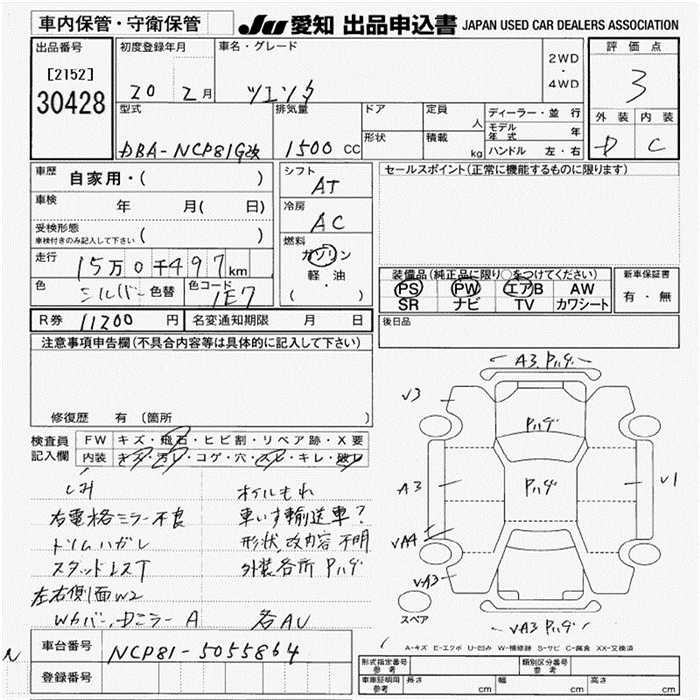 車内保管・守衛保管
JU 愛知 出品申込書 JAPAN USED CAR DEALERS ASSOCIATION
出品番号
[2152]
30428
初度登録年月
20 2月
車名・グレード
2WD
・
4WD
評価点
3
外装 内装
D C
型式
DBA-NCP81G改
排気量
1500 CC
ドア
形状
定員
人
積載
kg
ディーラー・並行
モデル年式 年
ハンドル 左・右
車歴
自家用・( )
車検
年 月( 日)
受検形態
車検付きのみ記入して下さい ( )
走行
15万0千497km
色
シルバー 色替
色コード
1E7
シフト
AT
冷房
AC
燃料
ガソリン
軽油
( ・ )
セールスポイント(正常に機能するものに限ります)
装備品(純正品に限り○をつけてください)
PS PW エアB AW
SR ナビ TV カワシート
新車保証書
有・無
後日品
R券 11200 円
名変通知期限 月 日
注意事項申告欄(不具合内容等は具体的に記入して下さい)
修復歴 有(箇所 )
検査員記入欄
FW キズ・飛石・ヒビ割・リペア跡・X要
内装 キズ・汚れ・コゲ・穴・スレ・キレ・破レ
シミ
オイルもれ
右電格ミラー不良
車いす輸送車?
トリムハガレ
形状、改内容不明
スタッドレスT
外装各所 Pハゲ
左右側面W2
Wカバー、Dミラー A 各AU
車台番号
NCP81-5055864
N
登録番号
A3.Pハゲ
√3
Pハゲ
A3
Pハゲ
√1
√A4
√A3
スペア
√A3 Pハゲ
A-キズ E-エクボ U-凹み W-補修跡 S-サビ C-腐食 XX-交換済
形式指定番号
参考
類別区分番号
参考
車庫証明用
参考
長さ cm
幅 cm
高さ cm